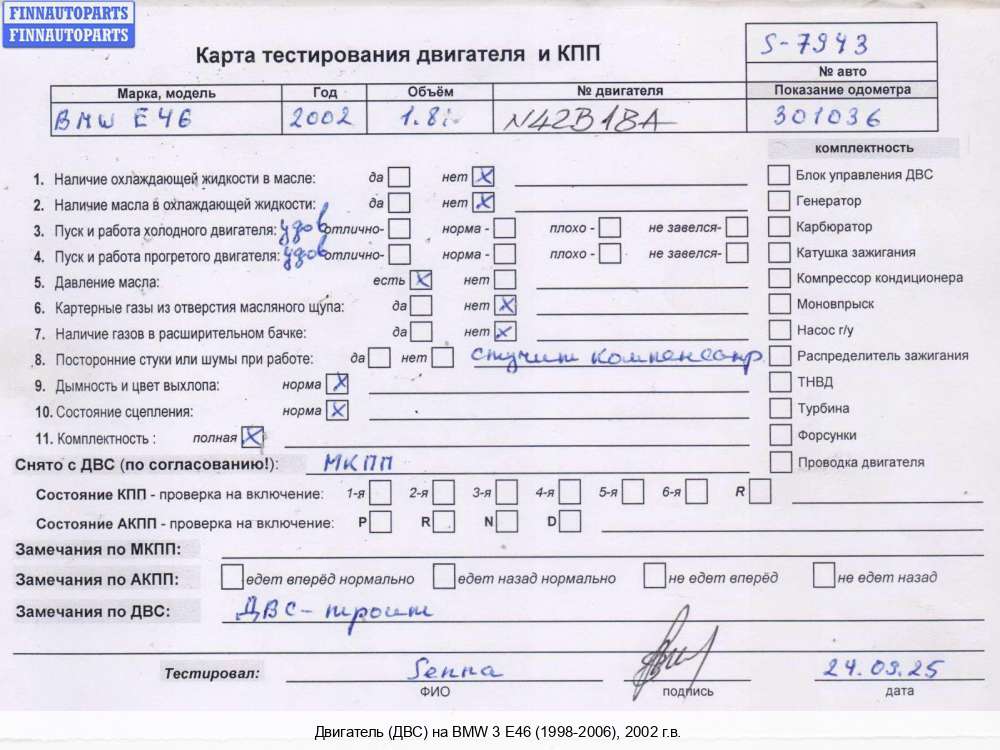 FINNAUTOPARTS
FINNAUTOPARTS
Карта тестирования двигателя и КПП
S-7943
№ авто
Марка, модель Год Объём № двигателя Показание одометра
BMW E46 2002 1.8i N42B18A 301036
комплектность
1. Наличие охлаждающей жидкости в масле: да нет X Блок управления ДВС
2. Наличие масла в охлаждающей жидкости: да нет X Генератор
3. Пуск и работа холодного двигателя: удов отлично- норма - плохо - не завелся- Карбюратор
4. Пуск и работа прогретого двигателя: удов отлично- норма - плохо - не завелся- Катушка зажигания
5. Давление масла: есть X нет Компрессор кондиционера
6. Картерные газы из отверстия масляного щупа: да нет X Моновпрыск
7. Наличие газов в расширительном бачке: да нет X Насос г/у
8. Посторонние стуки или шумы при работе: да нет стучит Распределитель зажигания
9. Дымность и цвет выхлопа: норма X ТНВД
10. Состояние сцепления: норма X Турбина
11. Комплектность : полная X Форсунки
Снято с ДВС (по согласованию!): МКПП Проводка двигателя
Состояние КПП - проверка на включение: 1-я 2-я 3-я 4-я 5-я 6-я R
Состояние АКПП - проверка на включение: P R N D
Замечания по МКПП:
Замечания по АКПП: едет вперёд нормально едет назад нормально не едет вперёд не едет назад
Замечания по ДВС: ДВС - троит
Тестировал: Senna 24.09.25
ФИО подпись дата
Двигатель (ДВС) на BMW 3 E46 (1998-2006), 2002 г.в.